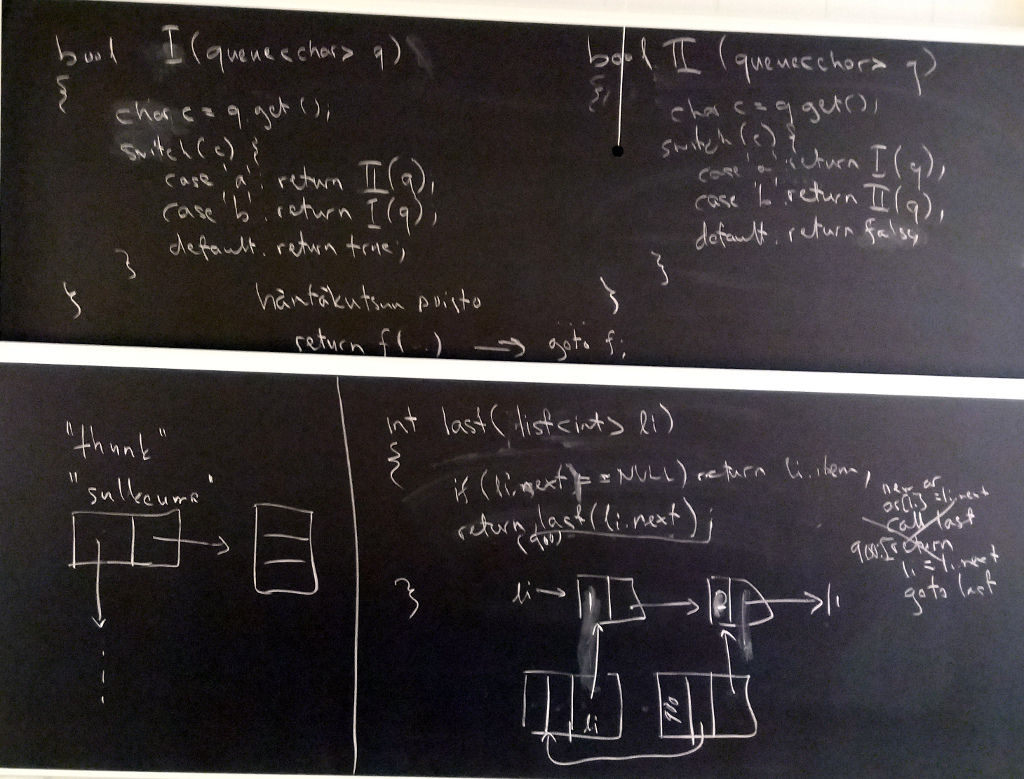 bool I (queue<char> q)
{
char c = q.get();
switch(c) {
case 'a': return II(q);
case 'b': return I(q);
default: return true;
}
}
bool II (queue<char> q)
{
char c = q.get();
switch(c) {
case 'a': return I(q);
case 'b': return II(q);
default: return false;
}
}
häntäkutsun poisto
return f(...) → goto f;
"thunk"
"sulkeuma"
int last(list<int> li)
{
if (li.next == NULL) return li.item;
return last(li.next);
(900)
}
new ar
ar[li] = li.next
call last
900: return
li = li.next
goto last
li →
1
2
li
900